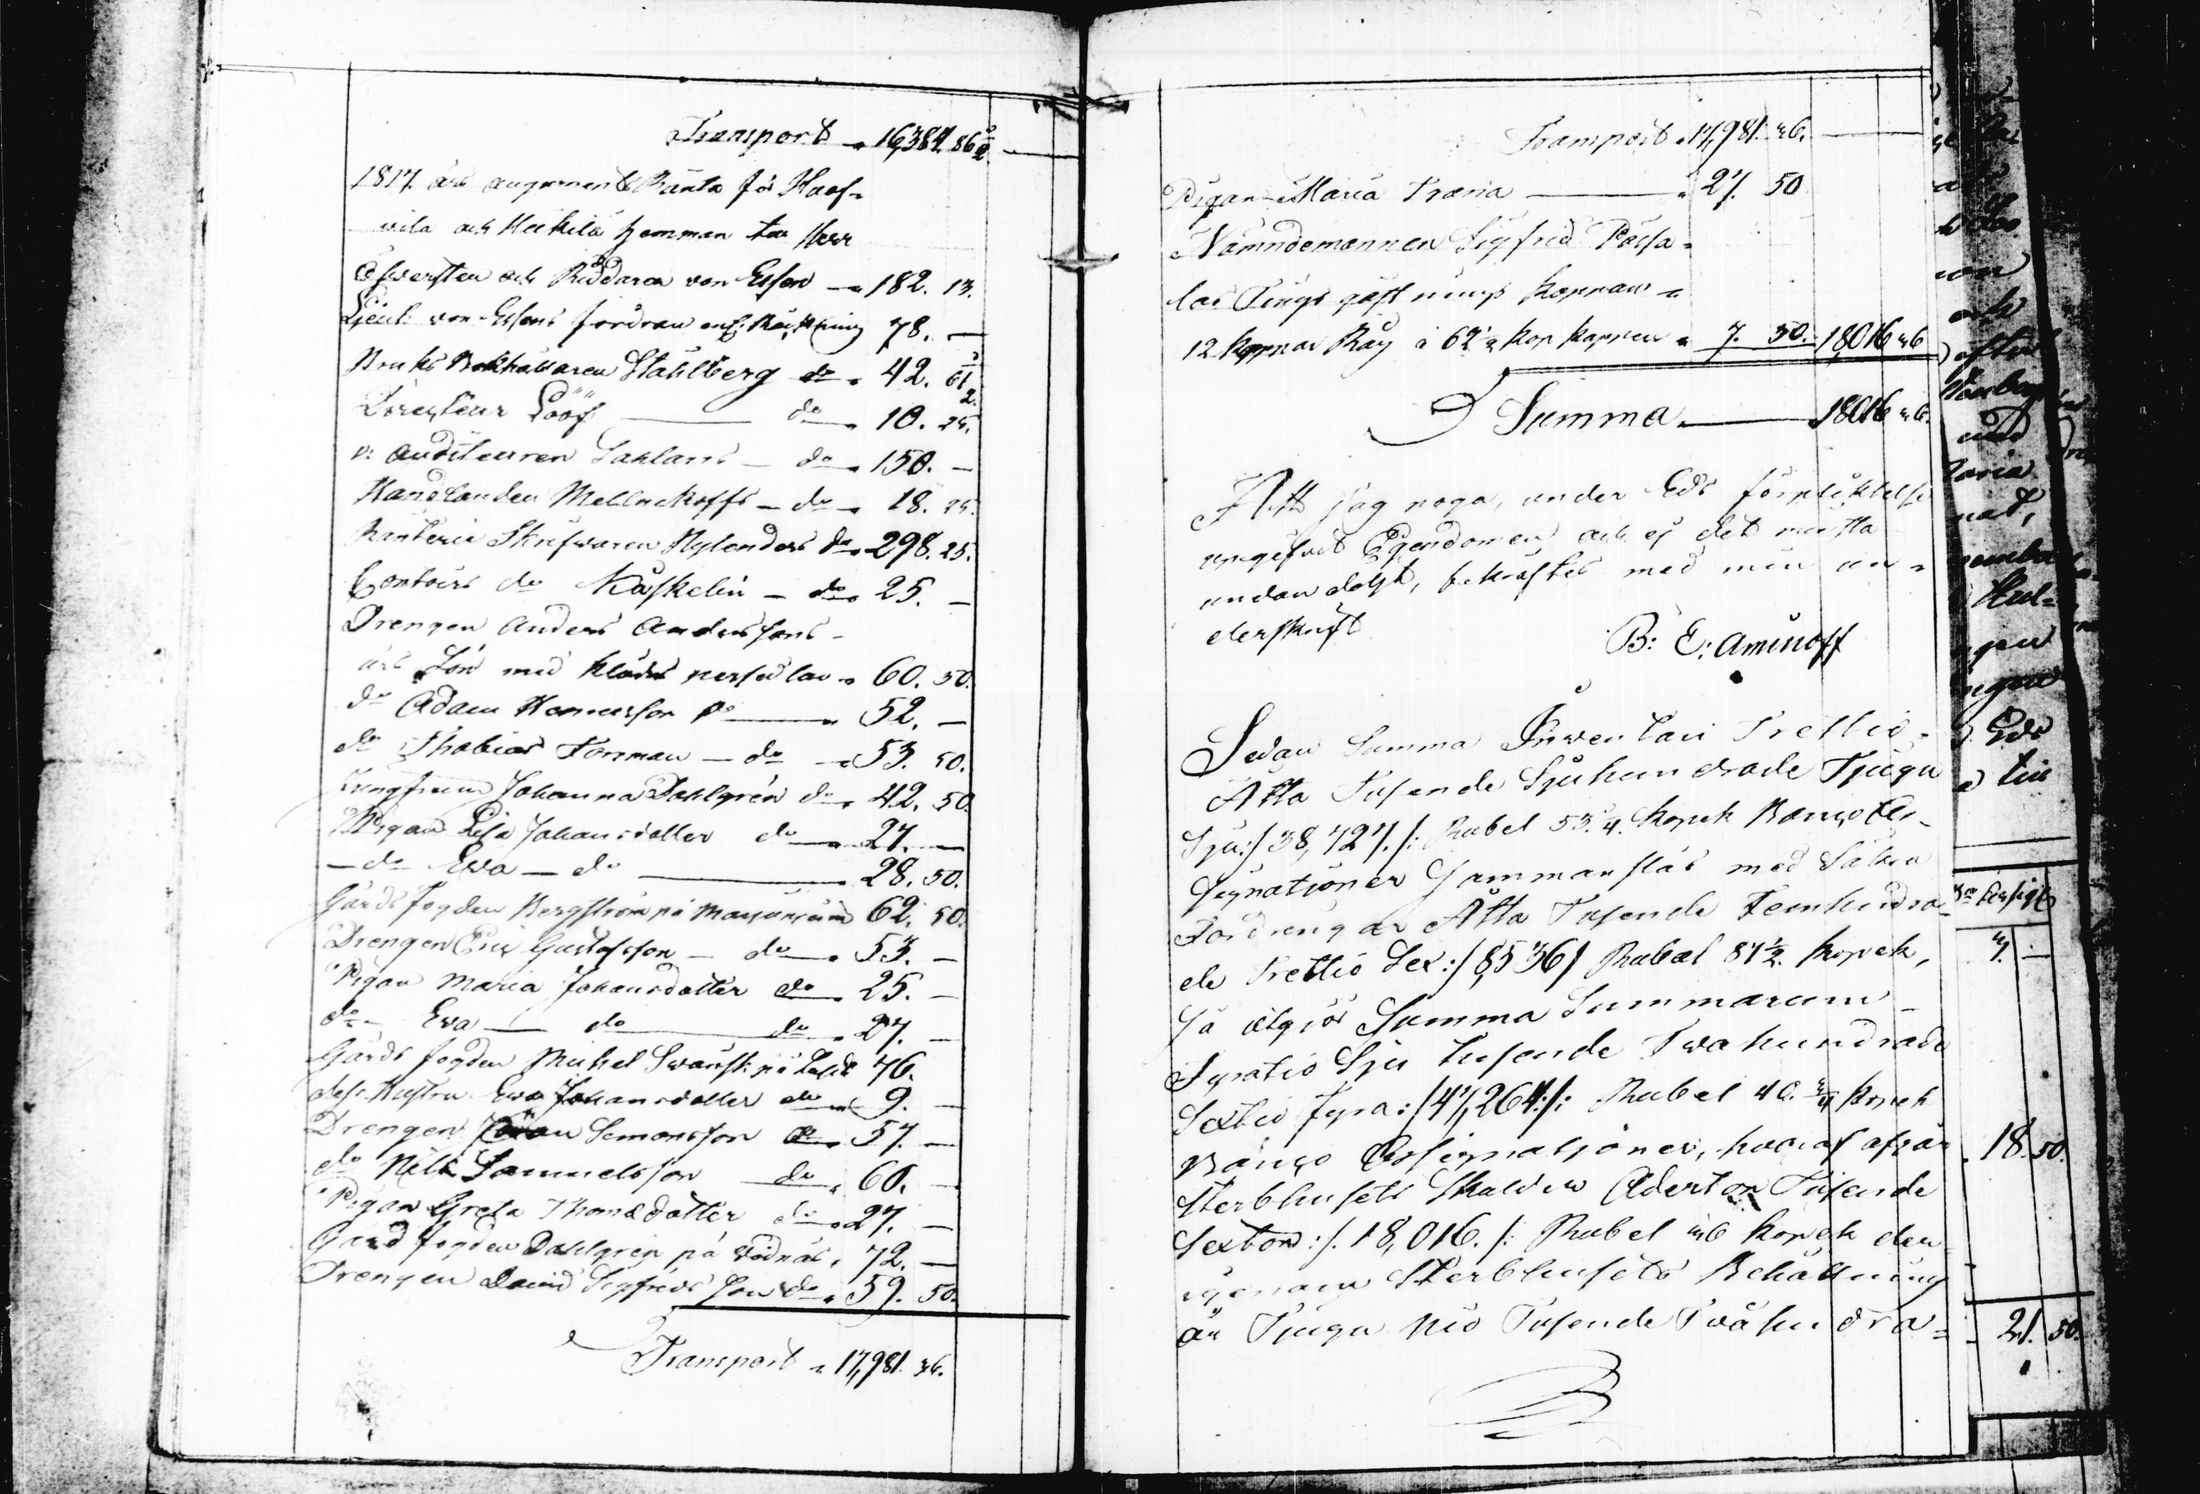 Transport " 16,384. 86 1/2
1817. års augments Ränta för Haaf=
wila och Heikilä hemman till Herr
Öfwersten och Riddaren von Essen — " 182. 13.
Lieut: von Essens fordran enl: Räkning 78. —
Bruks Bokhållaren Ståhlberg do " 42. 61 1/2
Directeur Lööf — do " 10. 25.
v: Auditeuren Sahlans — do " 150. —
Handlanden Mellnekoffs — do " 18. 25.
Ränterie Skrifwaren Hylenders do " 298. 25.
Contoirs do Käskelin — do " 25. —
Drengen Anders Anderssons
års Lön med klädes persedlar " 60. 50.
do Adam Henricsson do — " 52. —
do Thobias Forsman — do — " 53. 50.
Jungfrun Johanna Dahlgrén do " 42. 50.
Pigan Lisa Johansdotter do — " 27. —
— do Ewa — do — " 28. 50.
Gårds fogden Bergström på 62. 50.
Drengen Eric Gustafsson — do " 53. —
Pigan Maria Johansdotter do " 25. —
do — Ewa — do — do " 27. —
Gårds fogden Mickel Swansk: på 76.
dess Hustru Ewa Johansdotter do " 9. —
Drengen Simonsson do " 57. —
do Nils Samuelsson do " 60. —
Pigan Greta Thomædotter do " 27. —
Gård fogden Dahlgrén på " 72. —
Drengen David Sigfrids Son do " 59. 50.
Transport " 17,981. 36.
Transport " 17,981. 36. —
Pigan Maria — " 27. 50
Nämndemannen Sigfrid
las Tings gästnings kappar
12 kappar Råg à 62 1/2 kop kappen " 7. 50. 18,016 36
Summa — 18,016 36.
Att jag noga, under Eds förpliktelse
uppgifvit Egendomen och ej det minsta
undandolgt, bekräftes med min un=
derskrift
B: E: Aminoff
Sedan Summa Inventarii Trettio=
Åtta Tusende Sjuhundrade Tjugu
Sju :/ 38,727. /: Rubel 53. 1/4. Kopek Banco As=
signationer sammanslås med Säkra
Fordringar Åtta Tusende Femhundra=
de Trettio Sex :/ 8,536 / Rubel 87 1/2 kopek,
så utgjör Summa Summarum
Fyratio Sju tusende Twåhundrade
Sextio fyra :/ 47,264 :/: Rubel 40. 3/4 kopek
Banco Assignationer, hvaraf afgår
Sterbhusets Skulder Aderton Tusende
Sexton :/. 18,016. /: Rubel 36 kopek den
igenom Sterbhusets Behållning
är Tjugu nio Tusende Twåhundra=
18. 50.
21. 50.